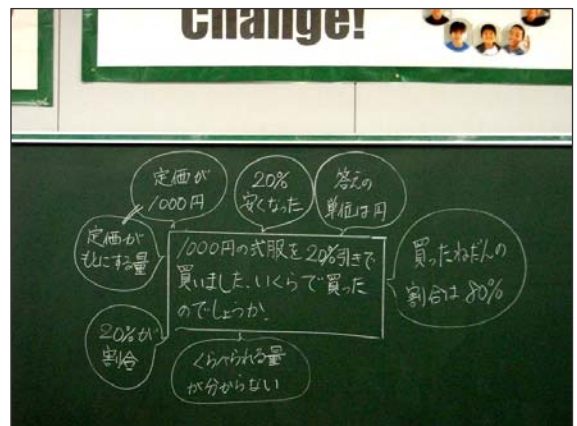 Change!
定価が
1000円
20%
安くなった
答えの
単位は円
定価が
もとにする量
1000円の式服を20%引きで
買いました。いくらで買った
のでしょうか。
買ったねだんの
割合は80%
20%が
割合
くらべられる量
が分からない